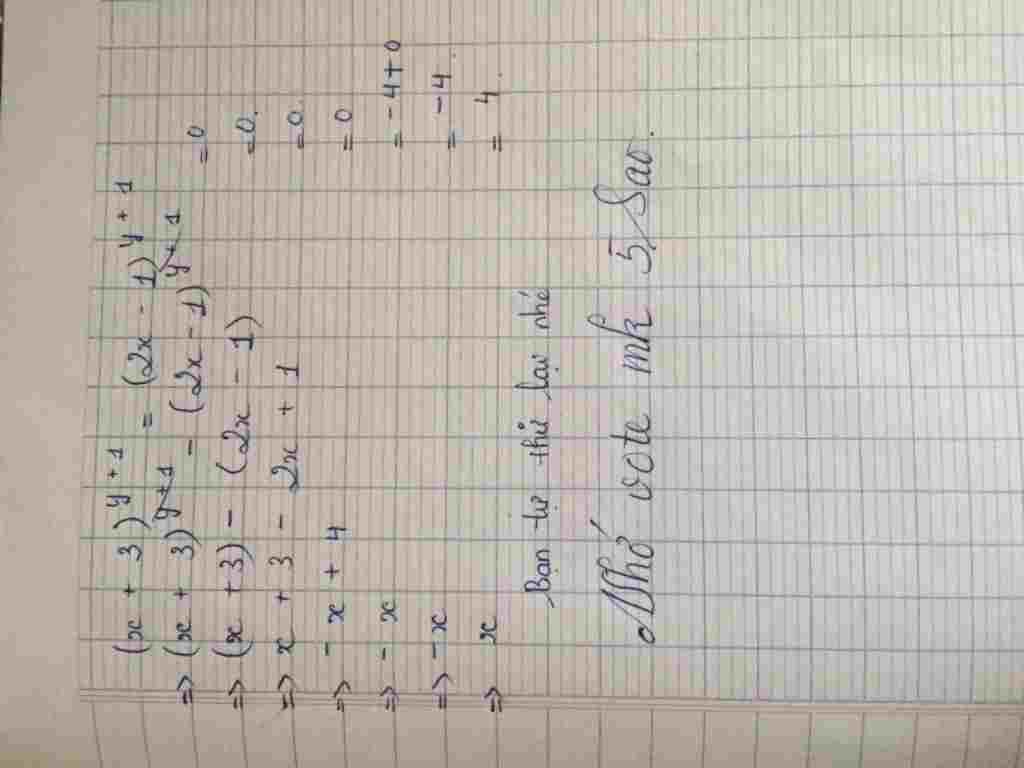 (x + 3)^{y + 1} = (2x - 1)^{y + 1}
=> (x + 3)^{y + 1} - (2x - 1)^{y + 1} = 0
=> (x + 3) - (2x - 1) = 0.
=> x + 3 - 2x + 1 = 0
=> - x + 4 = 0
=> - x = - 4 + 0
=> - x = - 4.
=> x = 4.
Bạn tự thử lại nhé
Nhớ vote mk 5 Sao.